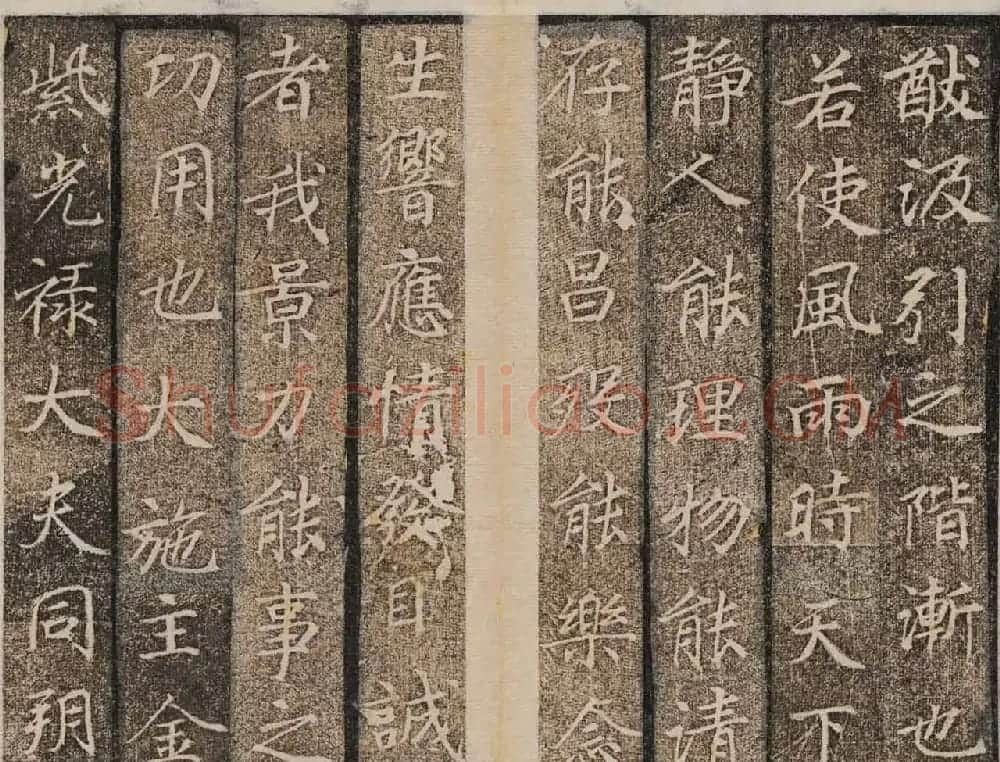 猷汲引之階漸也
若使風雨時天下
靜人能理物能清
存能昌歿能樂念
生響應情發目誠
者我景力能事之
切用也大施主金
紫光祿大夫同朔
Shufaziliao.COM